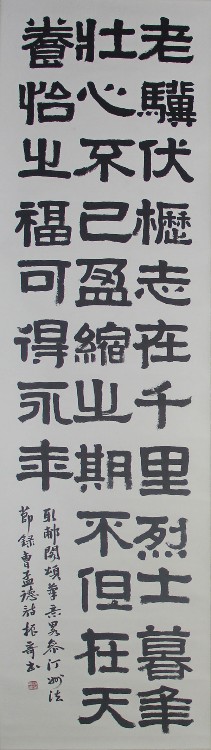 老驥伏櫪志在千里烈士暮年
壯心不已盈縮之期不但在天
養怡之福可得永年
取郙閣頌筆意略參汀州法
節錄曹孟德詩